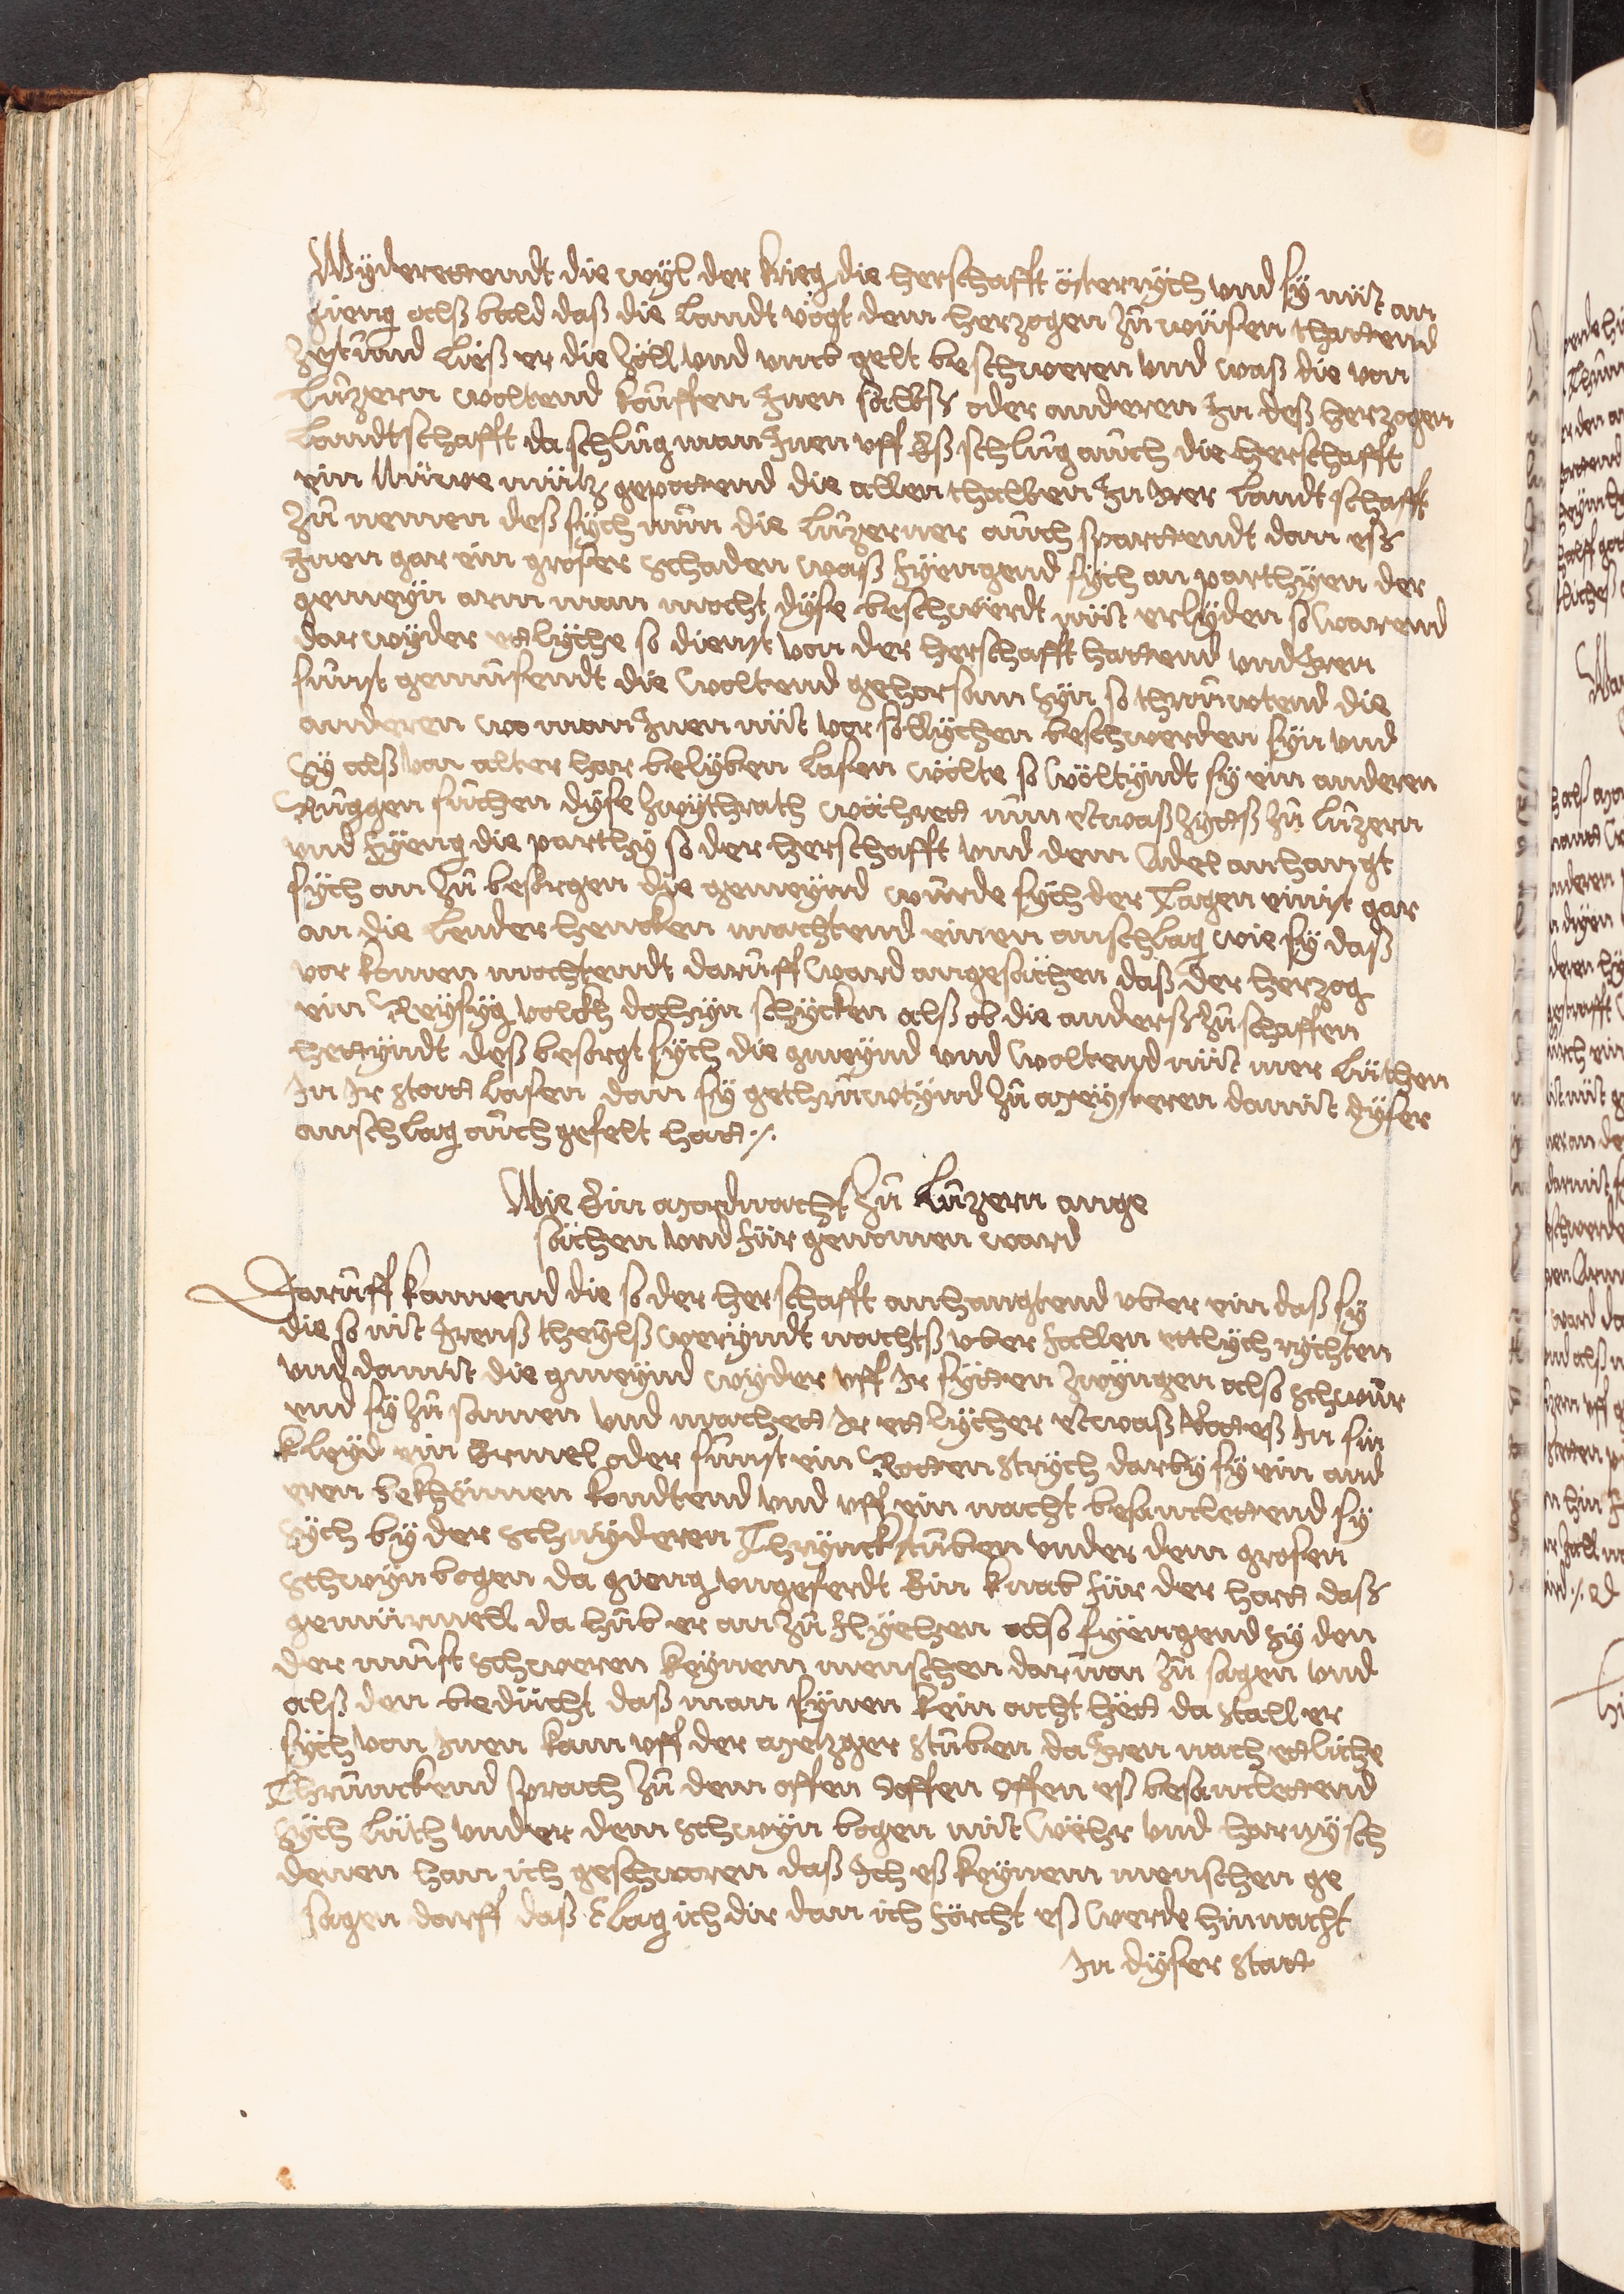 Wyderettendt die wyl der krieg die herschafft österrÿch vnd sÿ nüt an
gieng alß bald daß die Landt vögt dem herzogen zů wüsen thattend
zestund Ließ er die zöll vnd vmb gelt beschweren vnd waß die von
Lůzern woltend koůffen Inen sälbß oder anderen In deß herzogen
Landtschafft da schlůg man Inen vff Eß schlůg aůch die herschafft
ein Nüwe müntz gepottend die allenthalben In Irer Landtschafft
zů nemen deß sÿch nůn die Lůzerner aůch spartendt dan eß
Inen gar ein groser schaden waß fÿengend sÿch an parthÿen der
gemeÿn arm man mocht dÿse beschwerdt nüt erlÿden so warend
darwÿder ettlÿche so dienst von der herschafft hattend vnd Iren
sůnst genůsendt die woltend gehorsam sÿn so thröůwtend die
anderen wo man Inen nüt vor söllÿchen beschwerden sÿn vnd
Sÿ alß von alter har belÿben Lasen wölte so wöltÿndt sÿ ein anderen
Růggen sůchen dÿse zwÿthrath währett nůn etwaß zÿttß zů Lůzern
vnd fÿeng die parthÿ so der herschafft vnd dem Adel anhangt
sÿch an zů besorgen die gemeÿnd wůrde sÿch der Tagen einist gar
an die Lender hencken machtend einen anschlag wie sÿ daß
vor komen mochtendt darůff ward angesächen daß der herzog
ein Reÿsÿg volckh dahÿn schÿcken alß ob die anderß zů schaffen
hettÿndt deß besorgt sÿch die gmeÿnd vnd woltend nüt mer Lüthen
In Ir statt Lasen dan sÿ gethrůwtÿnd zů meÿsteren damit dÿser
anschlag aůch gefelt hatt ·/·
Wie Ein mordnacht zů Lůzern ange
sächen vnd für genomen ward
Darůff kamend die so der herschafft anhangtend vber ein daß sÿ
die so nit Irenß theÿlß werÿndt nachtß vber fallen ettlÿch rÿchten
vnd damit die gmeÿnd wÿder vff Ir sÿtten zwÿngen also schwůr
end sÿ zů samen vnd machett Ir ettlÿcher etwaß Rotteß In sin
kleÿd ein Ermel oder sůnst ein Rotten strÿch darbÿ sÿ ein and
eren bekhennen kondtend vnd vff ein nacht besamlettend sÿ
sÿch bÿ der schnÿderen Thrÿnckstůben vnder dem grosen
schwÿnbogen da gieng vngeferdt Ein knab für der hort daß
gemürmell da hůb er an zů flÿehen also fÿengend sÿ den
der můst schweren keÿnem menschen darůon zů sagen vnd
alß den bedücht daß man sÿnen kein acht hett da stall er
sÿch von Inen kam vff der metzger stůben da Iren noch ettliche
Thrůnckend sprach zů dem offen O offen Offen eß besamlettend
sÿch Lüth vnder dem schwÿn bogen mit wehr vnd harnÿsch
denen han ich geschworen daß Ich eß keÿnem menschen ge
sagen darff daß klag ich dir dan ich förcht eß werde hinnacht
In dÿser statt